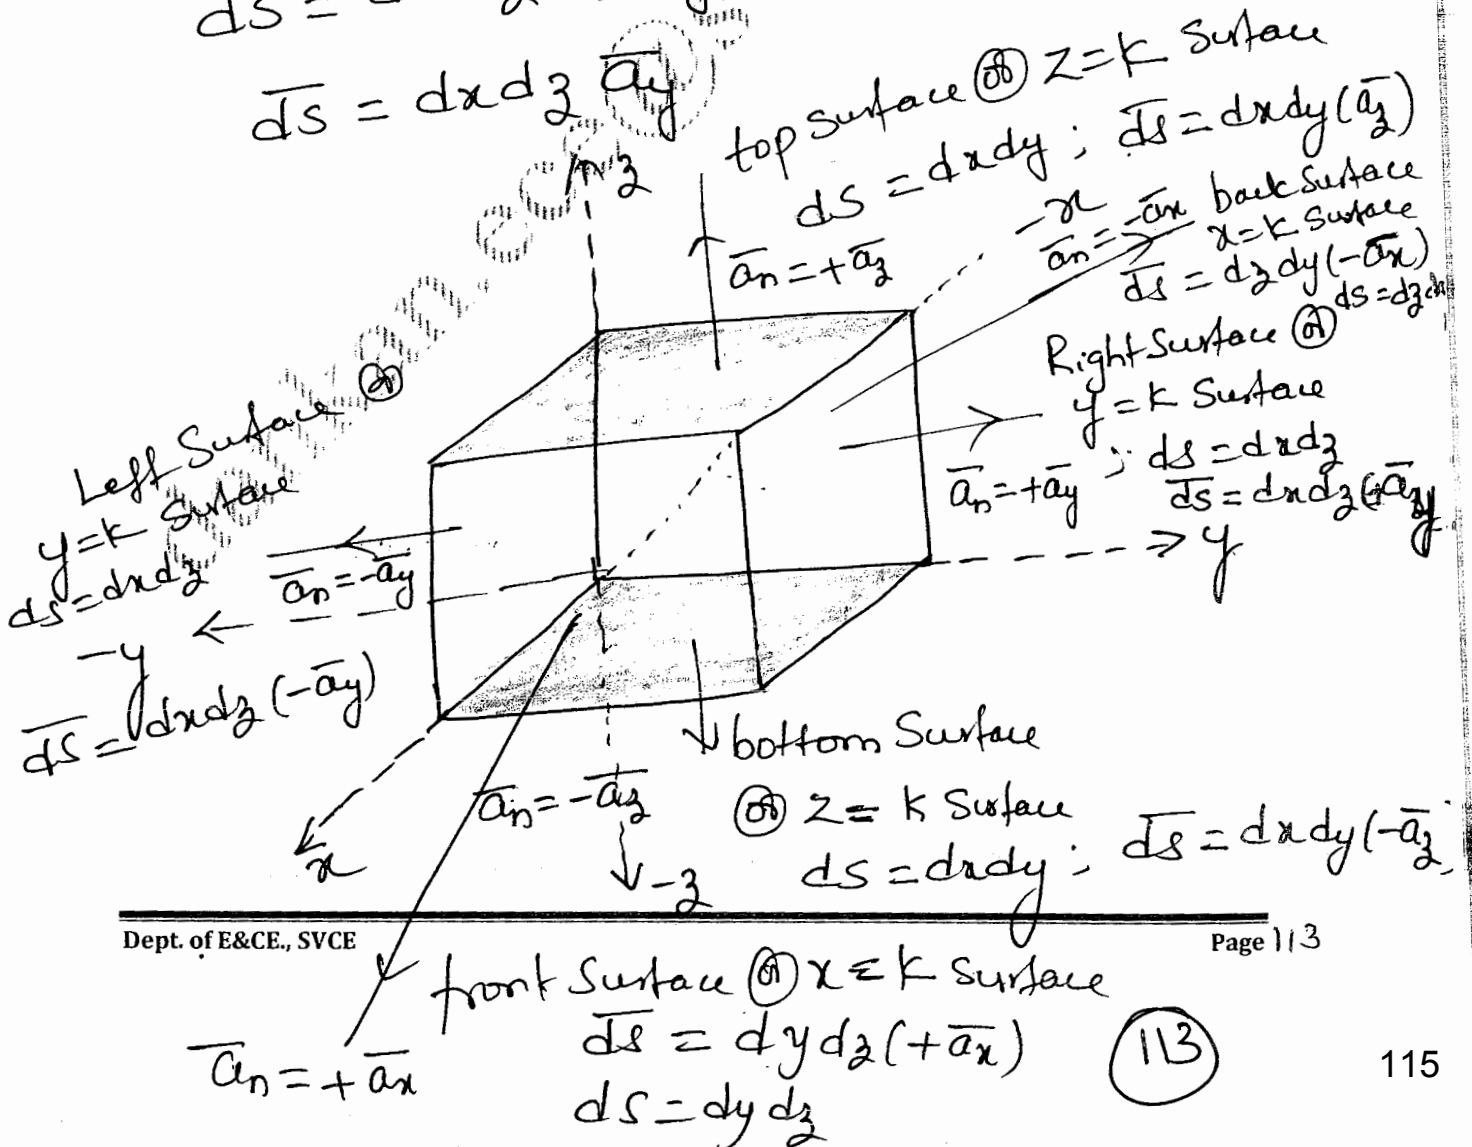 ds =
d̅s̅ = dx dz a̅y
z
top surface (or) z=k surface
ds = dxdy ; d̅s̅ = dxdy(a̅z)
a̅n = +a̅z
-x
a̅n = -a̅x
back surface
x=k surface
d̅s̅ = dzdy(-a̅x)
ds = dz
Right surface (or)
y=k surface
; ds = dxdz
a̅n = +a̅y
d̅s̅ = dxdz(+a̅y
y
Left Surface (or)
y=k surface
ds = dxdz
a̅n = -a̅y
-y
d̅s̅ = dxdz(-a̅y)
x
bottom Surface
a̅n = -a̅z
(or) z = k surface
ds = dxdy ; d̅s̅ = dxdy(-a̅z)
-z
Dept. of E&CE., SVCE
Page 113
front surface (or) x=k surface
d̅s̅ = dydz(+a̅x)
a̅n = +a̅x
ds = dydz
113
115